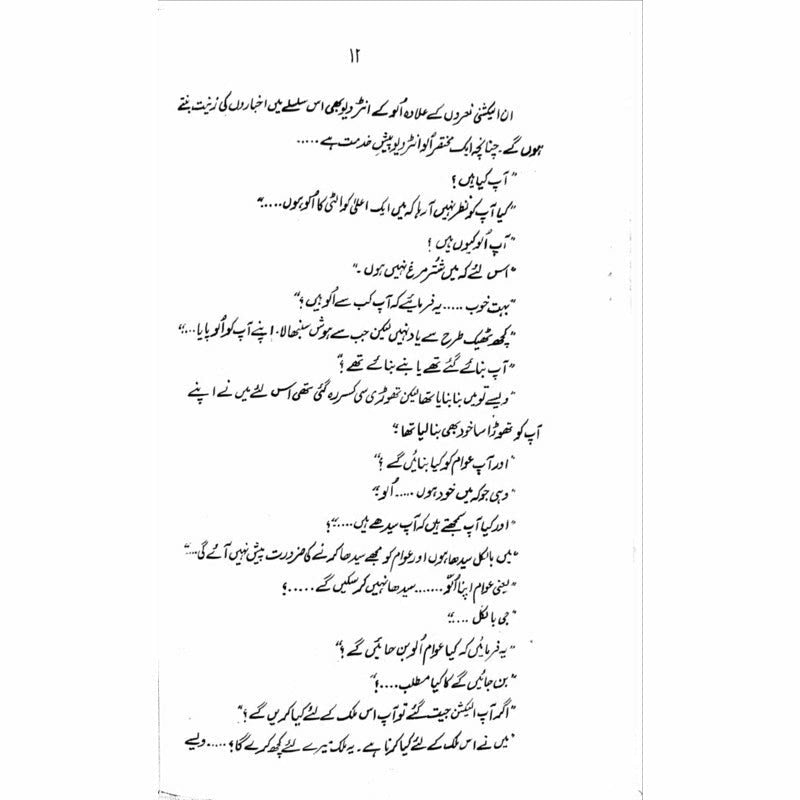 ۱۲
ان الیکشنی نعروں کے علاوہ اُلو کے انٹرویو بھی اس سلسلے میں اخباروں کی زینت بنتے
ہوں گے۔ چنانچہ ایک مختصر اُلو انٹرویو پیشِ خدمت ہے .....
"آپ کیا ہیں ؟
"کیا آپ کو نظر نہیں آ رہا کہ میں ایک اعلیٰ کوالٹی کا اُلو ہوں ....."
"آپ اُلو کیوں ہیں ؟
"اس لئے کہ میں شتر مرغ نہیں ہوں۔"
"بہت خوب ..... یہ فرمائیے کہ آپ کب سے اُلو ہیں ؟"
"کچھ ٹھیک طرح سے یاد نہیں لیکن جب سے ہوش سنبھالا۔ اپنے آپ کو اُلو پایا ..."
"آپ بنائے گئے تھے یا بنے بنائے تھے ؟"
"ویسے تو میں بنا بنایا تھا لیکن تھوڑی سی کسر رہ گئی تھی اس لئے میں نے اپنے
آپ کو تھوڑا سا خود بھی بنا لیا تھا"
"اور آپ عوام کو کیا بنائیں گے ؟"
"وہی جو کہ میں خود ہوں ..... اُلو"
"اور کیا آپ سمجھتے ہیں کہ آپ سیدھے ہیں ....."؟
"میں بالکل سیدھا ہوں اور عوام کو مجھے سیدھا کرنے کی ضرورت پیش نہیں آئے گی ...."
"یعنی عوام اپنا اُلو ....... سیدھا نہیں کر سکیں گے .....؟
"جی بالکل ...."
"یہ فرمائیں کہ کیا عوام اُلو بن جائیں گے ؟"
"بن جائیں گے کا کیا مطلب ....؟"
"اگر آپ الیکشن جیت گئے تو آپ اس ملک کے لئے کیا کریں گے ؟"
"میں نے اس ملک کے لئے کیا کرنا ہے۔ یہ ملک میرے لئے کچھ کرے گا؟ ..... ویسے